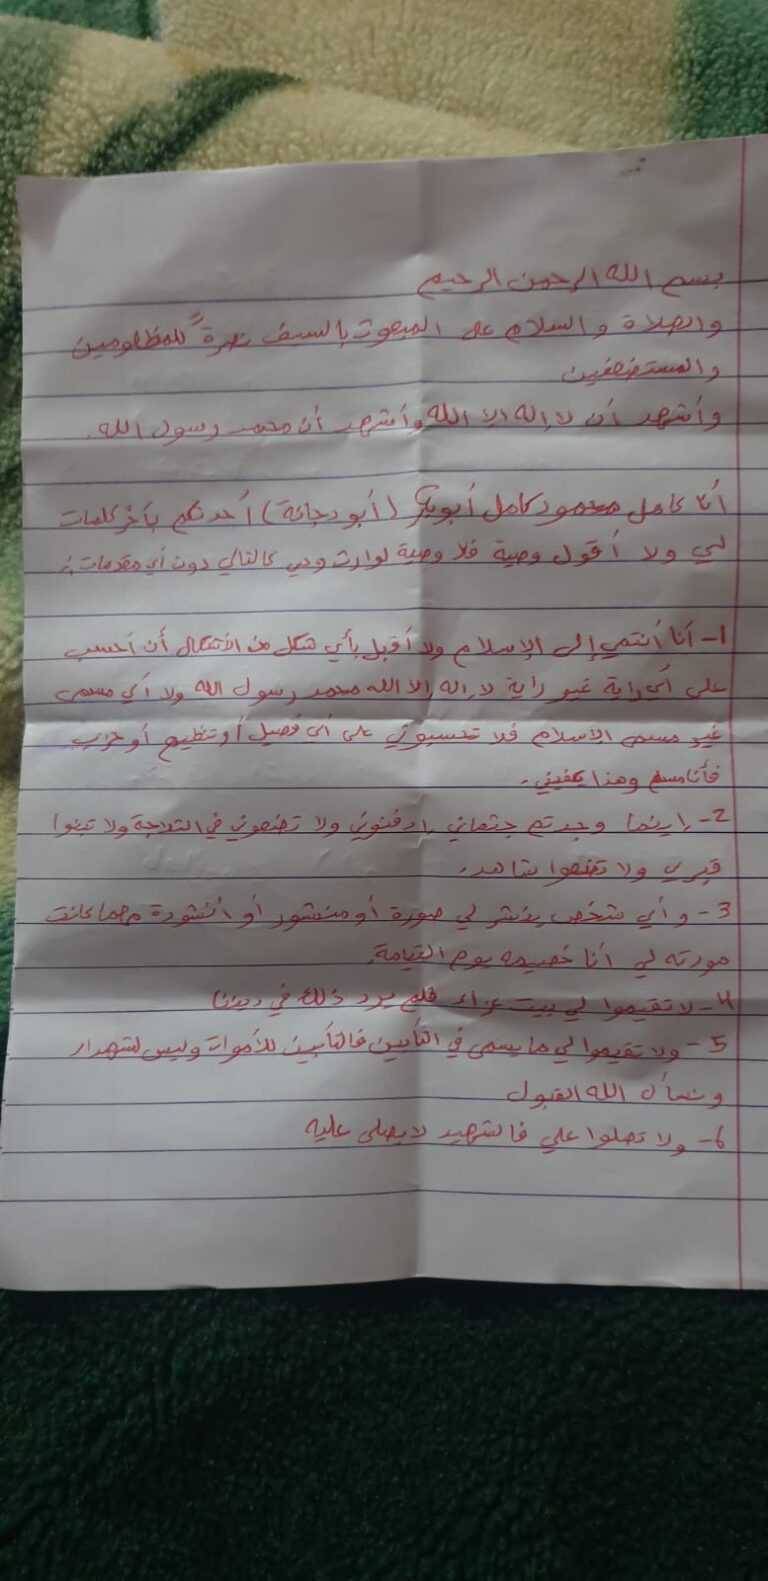 بسم الله الرحمن الرحيم
والصلاة والسلام على المبعوث بالسيف نصرةً للمظلومين
والمستضعفين
وأشهد أن لا إله إلا الله وأشهد أن محمد رسول الله.
أنا كامل محمود كامل أبوبكر (أبو دجانة) أحدثكم بآخر كلمات
لي ولا أقول وصية فلا وصية لوارث وهي كالتالي دون أي مقدمات:
1- أنا أنتمي إلى الإسلام ولا أقبل بأي شكل من الأشكال أن أحسب
على أي راية غير راية لا إله إلا الله محمد رسول الله ولا أي مسمى
غير مسمى الإسلام فلا تحسبوني على أي فصيل أو تنظيم أو حزب
فأنا مسلم وهذا يكفيني.
2- إينما وجدتم جثماني إدفنوني ولا تضعوني في الثلاجة ولا تبنوا
قبري ولا تضعوا شاهد.
3- وأي شخص ينشر لي صورة أو منشور أو أنشودة مهما كانت
مودته لي أنا خصيمه يوم القيامة.
4- لا تقيموا لي بيت عزاء فلم يرد ذلك في ديننا
5- ولا تقيموا لي ما يسمى في التأبين فالتأبين للأموات وليس لشهداء
ونسأل الله القبول
6- ولا تصلوا علي فالشهيد لا يصلى عليه